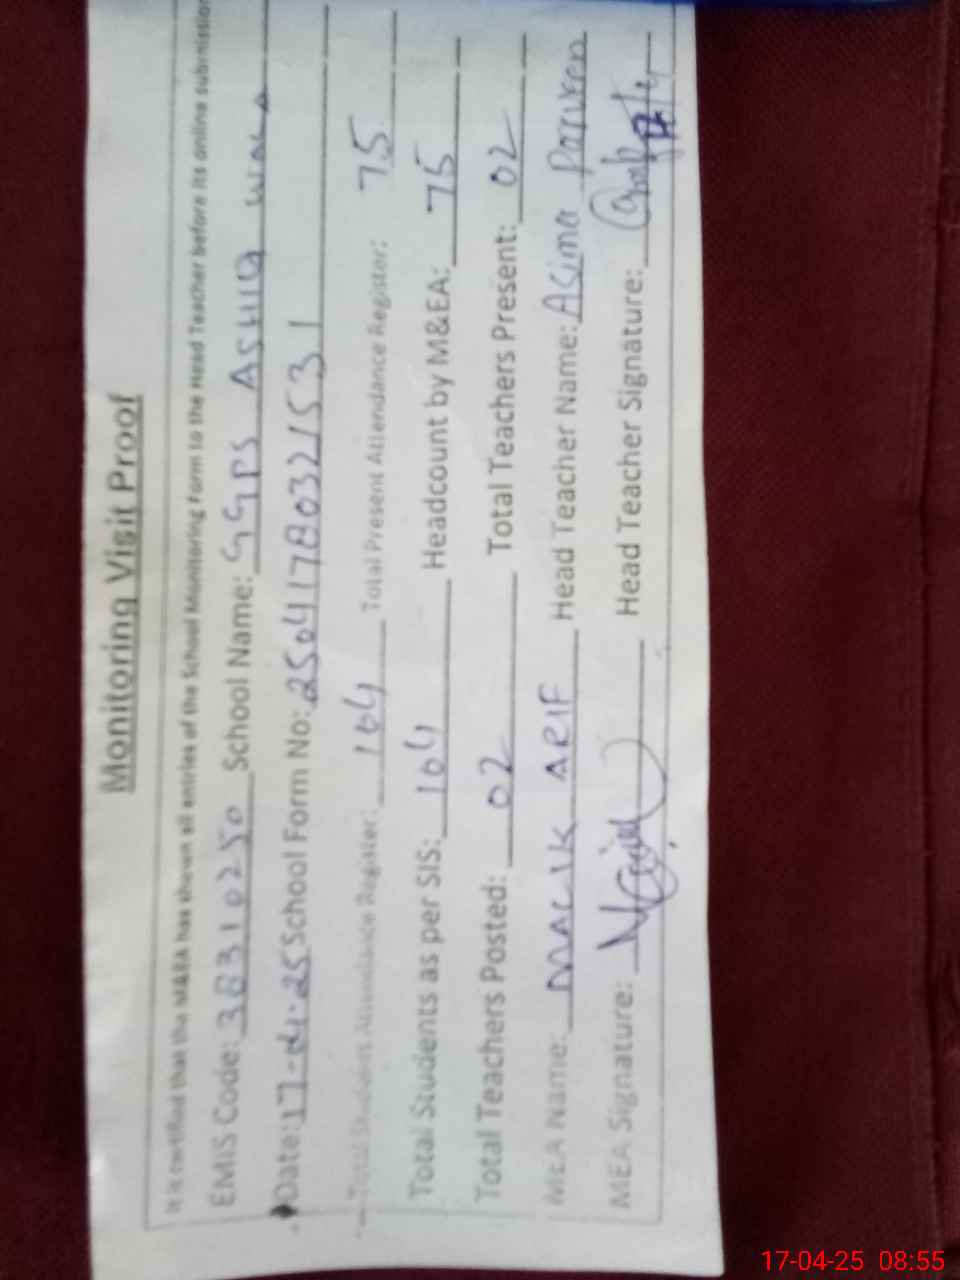 Monitoring Visit Proof
It is certified that the M&EA has shown all entries of the School Monitoring Form to the Head Teacher before its online submission
EMIS Code: 38310250 School Name: GGPS ASHIQ WALA
Date: 17-04-25 School Form No: 2504178032153 1
Total Student Attendance Register: 104 Total Present Attendance Register: 75
Total Students as per SIS: 104 Headcount by M&EA: 75
Total Teachers Posted: 02 Total Teachers Present: 02
MEA Name: MALIK ARIF Head Teacher Name: Asima Parveen
MEA Signature: Head Teacher Signature:
17-04-25 08:55